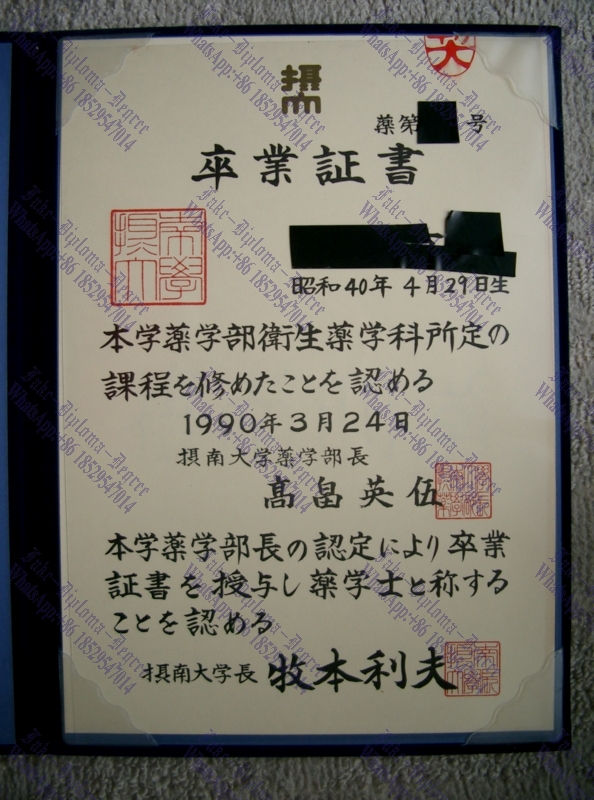 摂大
薬第 号
卒業証書
昭和40年 4月29日生
本学薬学部衛生薬学科所定の
課程を修めたことを認める
1990年3月24日
摂南大学薬学部長
髙畠英伍
本学薬学部長の認定により卒業
証書を授与し薬学士と称する
ことを認める
摂南大学長 牧本利夫
Fake-Diploma-Degree
WhatsApp:+86 18529547014